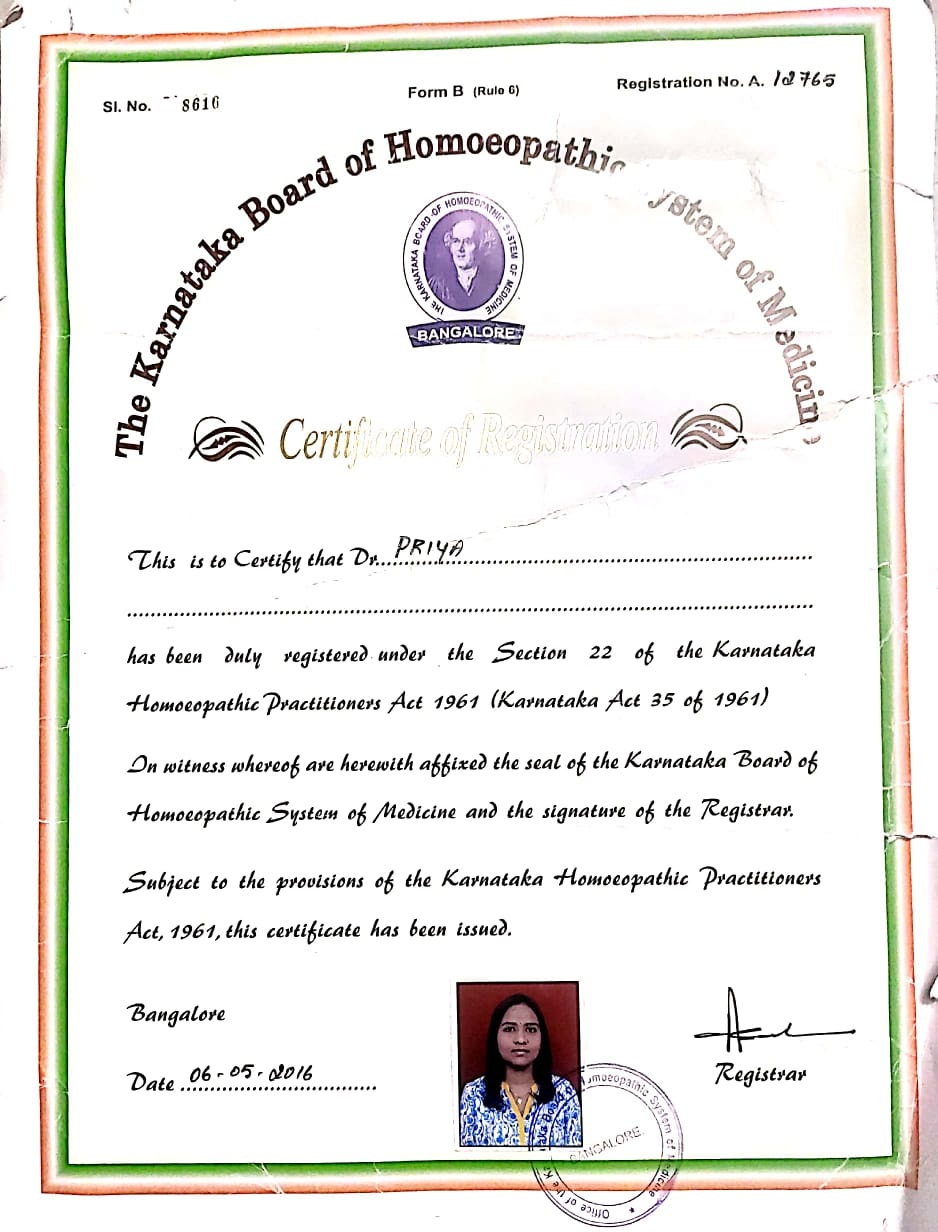 Sl. No. 8616
Form B (Rule 6)
Registration No. A. 12765
The Karnataka Board of Homoeopathic System of Medicine
THE KARNATAKA BOARD OF HOMOEOPATHIC SYSTEM OF MEDICINE
BANGALORE
Certificate of Registration
This is to Certify that Dr. PRIYA
has been duly registered under the Section 22 of the Karnataka
Homoeopathic Practitioners Act 1961 (Karnataka Act 35 of 1961)
In witness whereof are herewith affixed the seal of the Karnataka Board of
Homoeopathic System of Medicine and the signature of the Registrar.
Subject to the provisions of the Karnataka Homoeopathic Practitioners
Act, 1961, this certificate has been issued.
Bangalore
Date 06-05-2016
Registrar
Office of the Karnataka Board of Homoeopathic System of Medicine
BANGALORE.